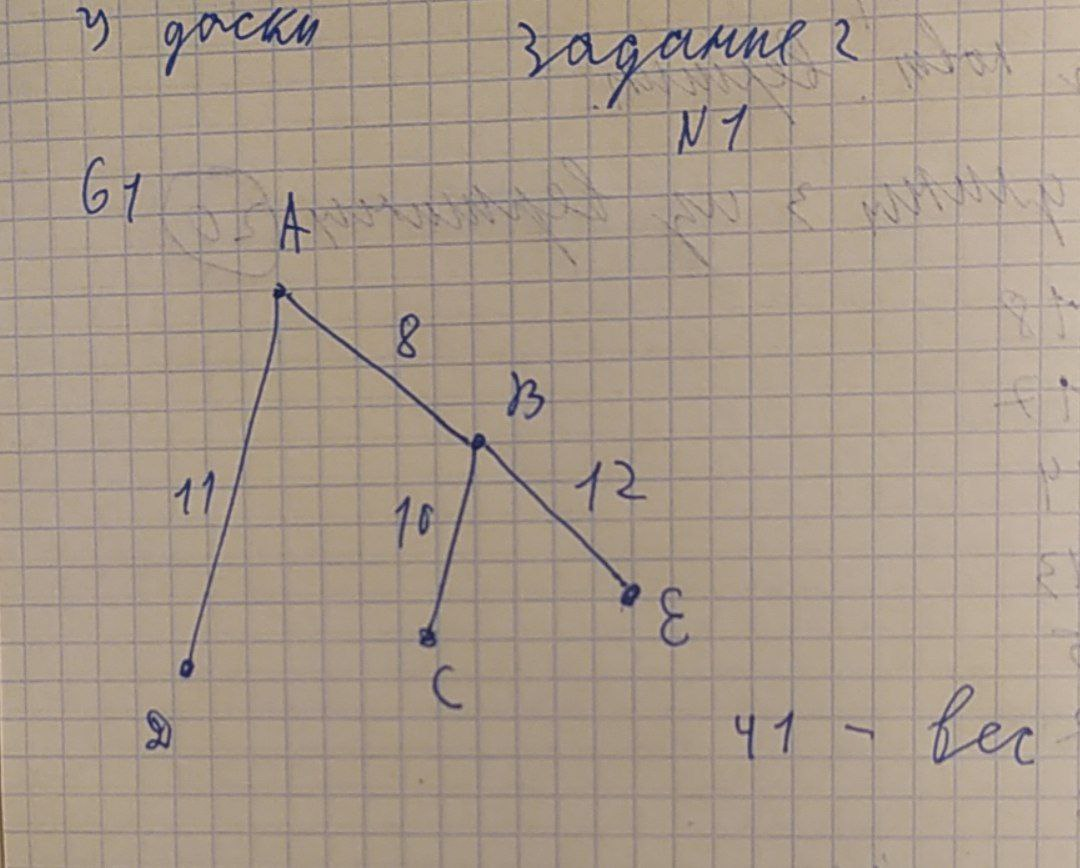 У доски
Задание 2
N1
G1
A
8
B
11
10
12
E
C
D
41 - вес